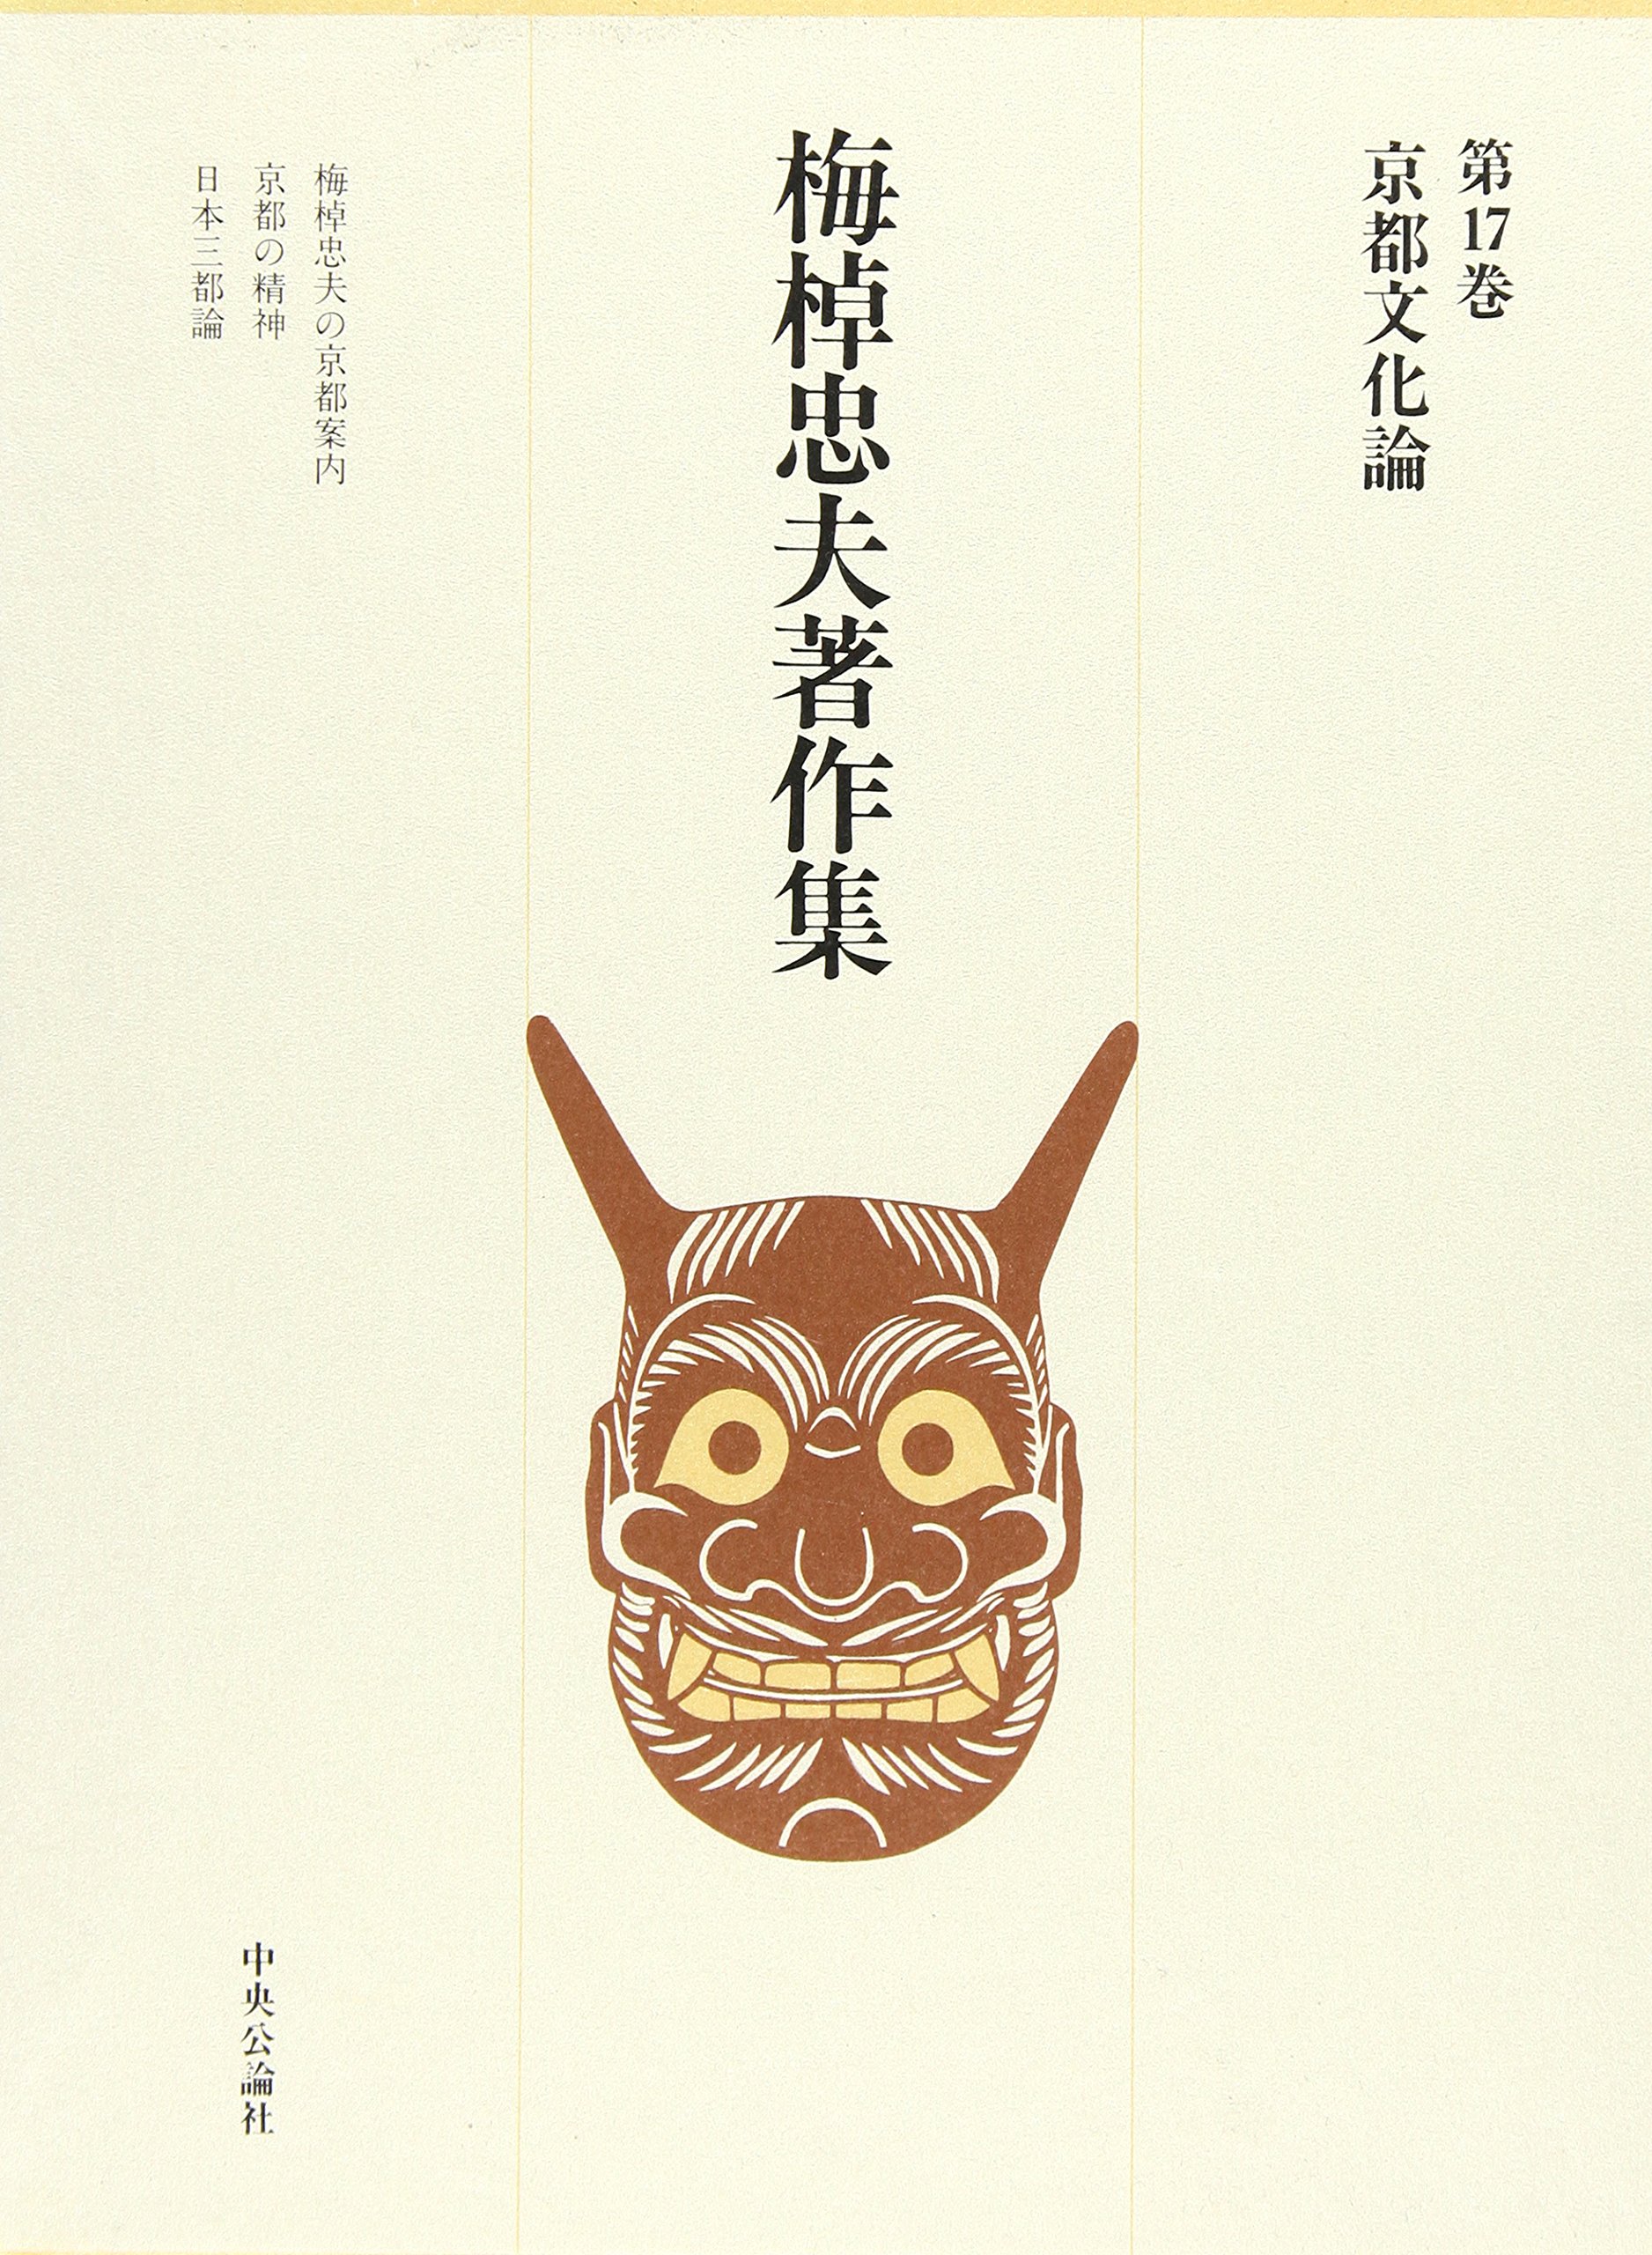 第17巻
京都文化論
梅棹忠夫著作集
梅棹忠夫の京都案内
京都の精神
日本三都論
中央公論社